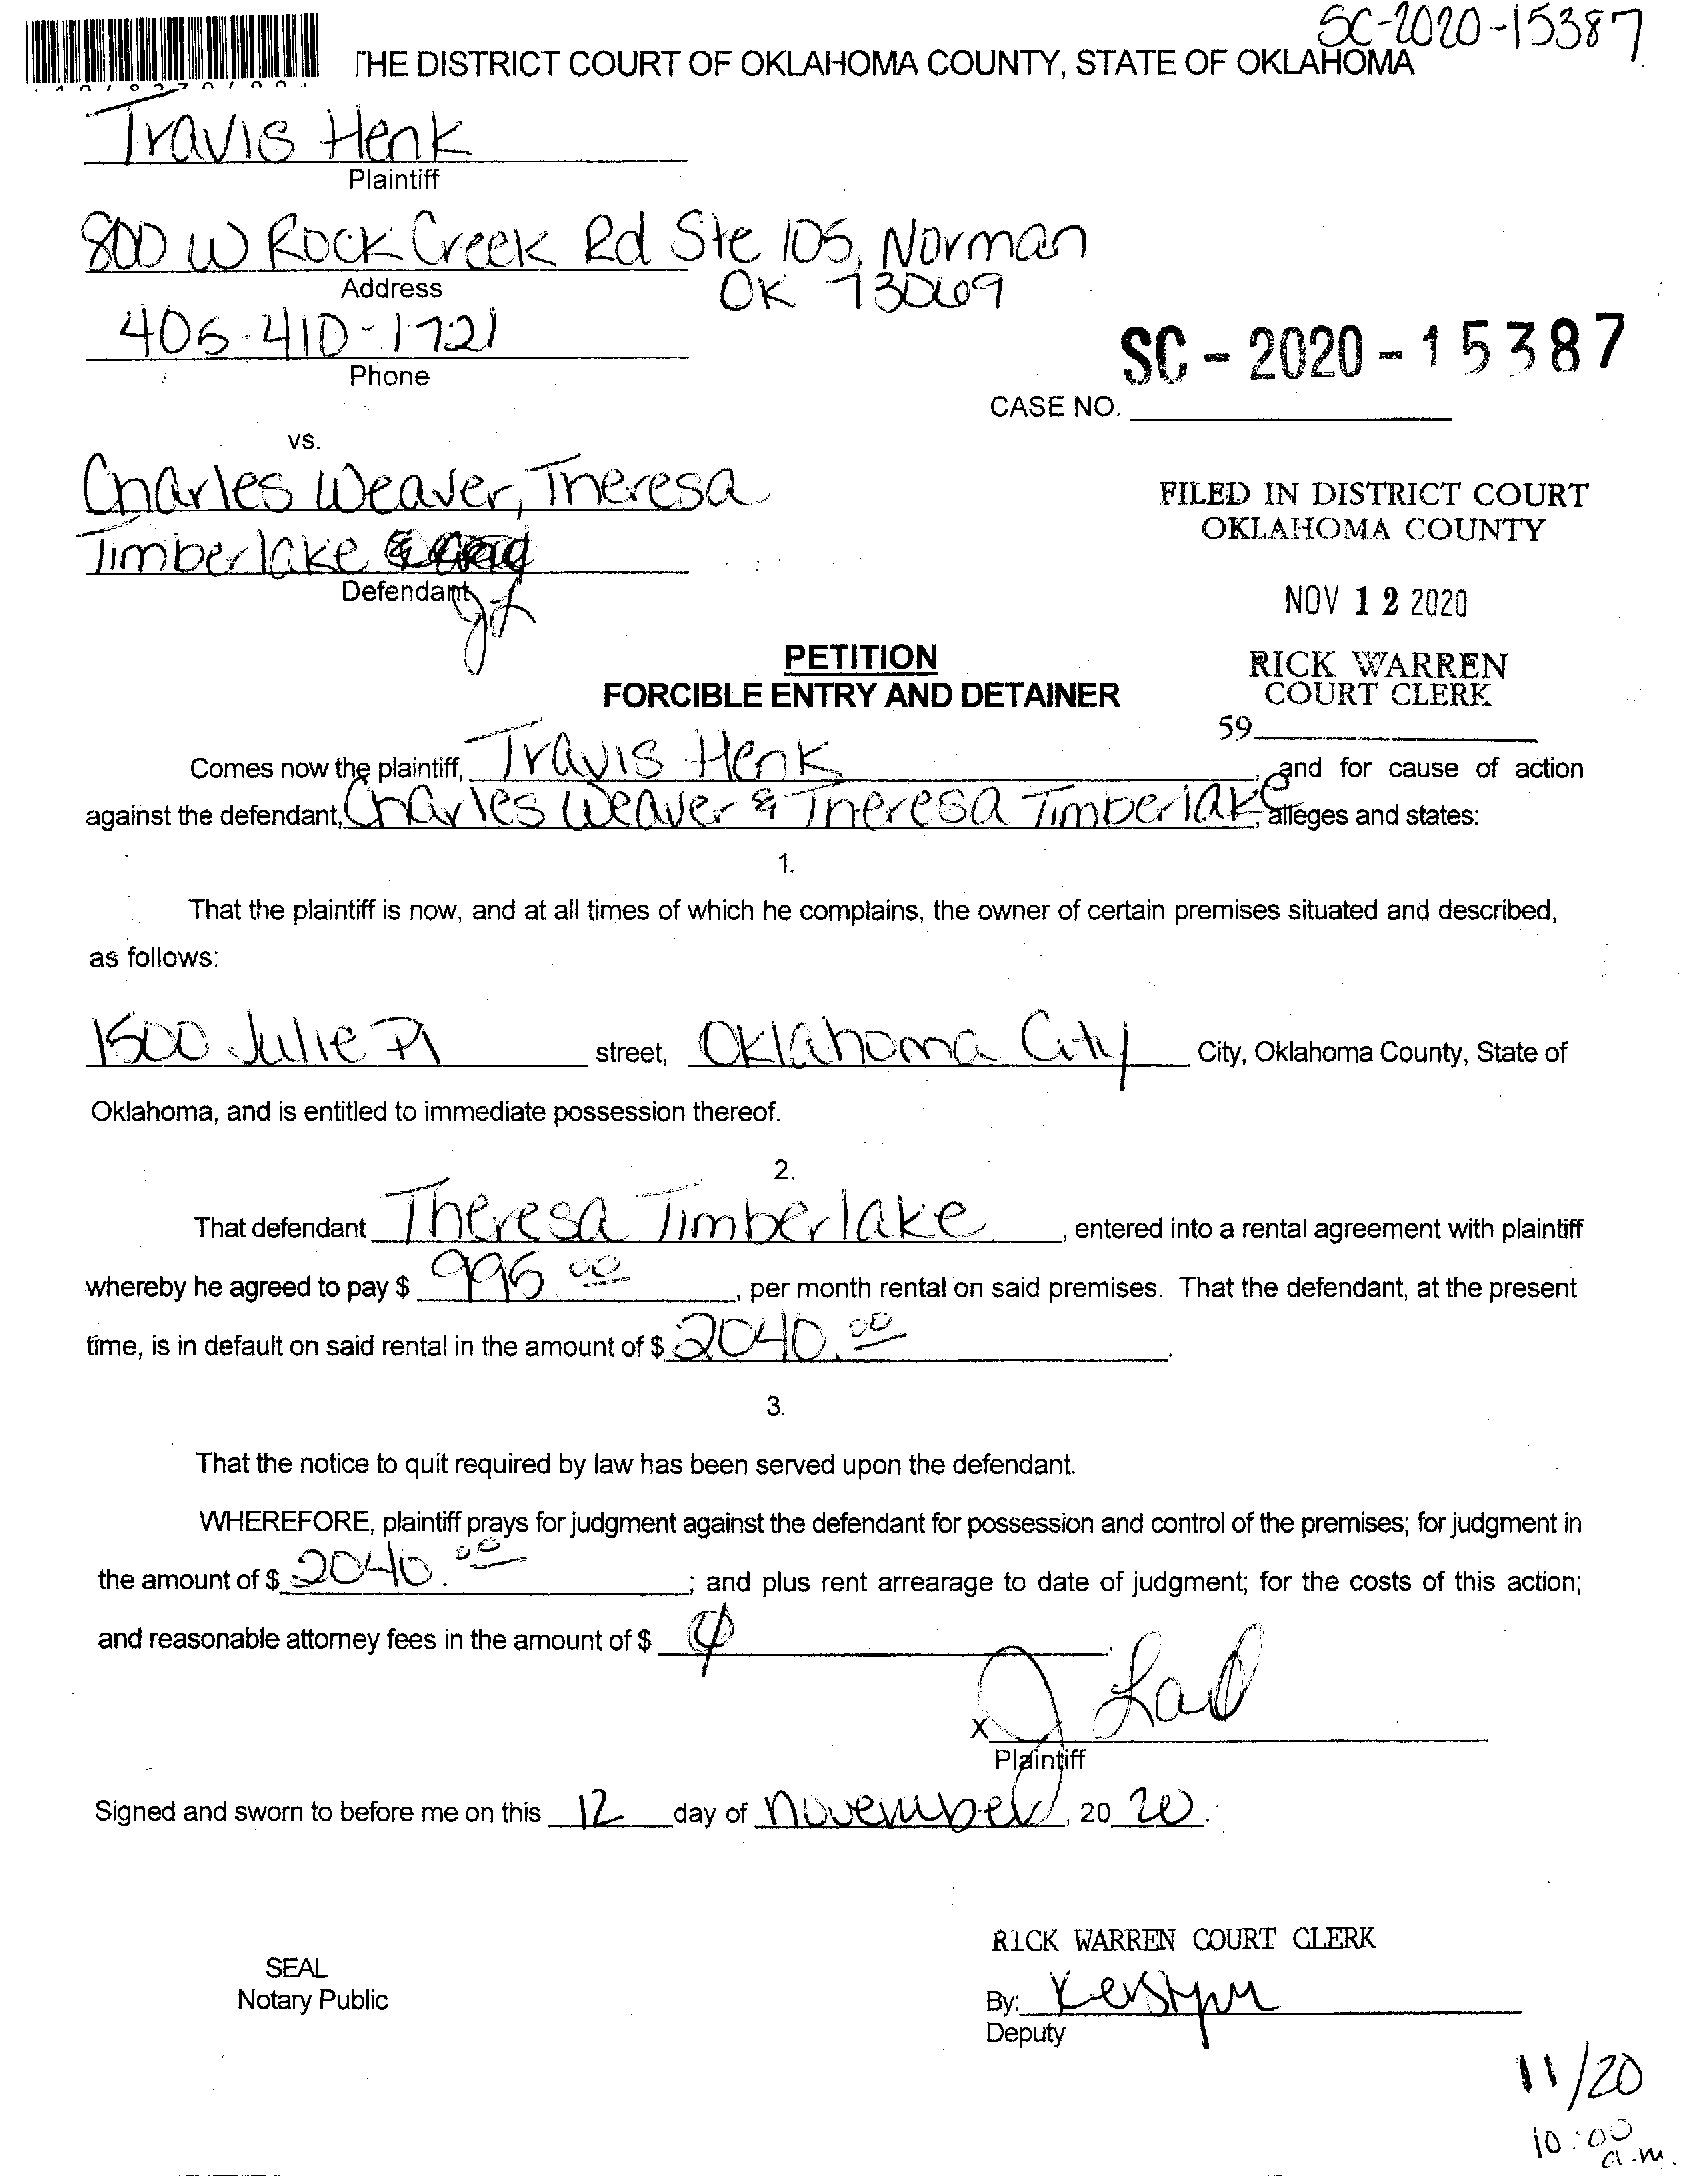 SC-2020-15387
THE DISTRICT COURT OF OKLAHOMA COUNTY, STATE OF OKLAHOMA
Travis Henk
Plaintiff
800 W Rock Creek Rd Ste 105, Norman
OK 73069
Address
405-410-1721
Phone
SC-2020-15387
CASE NO.
vs.
Charles Weaver, Theresa
Timberlake &
Defendant
FILED IN DISTRICT COURT
OKLAHOMA COUNTY
NOV 12 2020
RICK WARREN
COURT CLERK
59
PETITION
FORCIBLE ENTRY AND DETAINER
Comes now the plaintiff, Travis Henk, and for cause of action
against the defendant, Charles Weaver & Theresa Timberlake, alleges and states:
1.
That the plaintiff is now, and at all times of which he complains, the owner of certain premises situated and described,
as follows:
1500 Julie Pl street, Oklahoma City City, Oklahoma County, State of
Oklahoma, and is entitled to immediate possession thereof.
2.
That defendant Theresa Timberlake, entered into a rental agreement with plaintiff
whereby he agreed to pay $ 995 00, per month rental on said premises. That the defendant, at the present
time, is in default on said rental in the amount of $ 2040.00.
3.
That the notice to quit required by law has been served upon the defendant.
WHEREFORE, plaintiff prays for judgment against the defendant for possession and control of the premises; for judgment in
the amount of $ 2040.00; and plus rent arrearage to date of judgment; for the costs of this action;
and reasonable attorney fees in the amount of $
X
Plaintiff
Signed and sworn to before me on this 12 day of November, 20 20.
RICK WARREN COURT CLERK
SEAL
Notary Public
By:
Deputy
11/20
10:00
a.m.